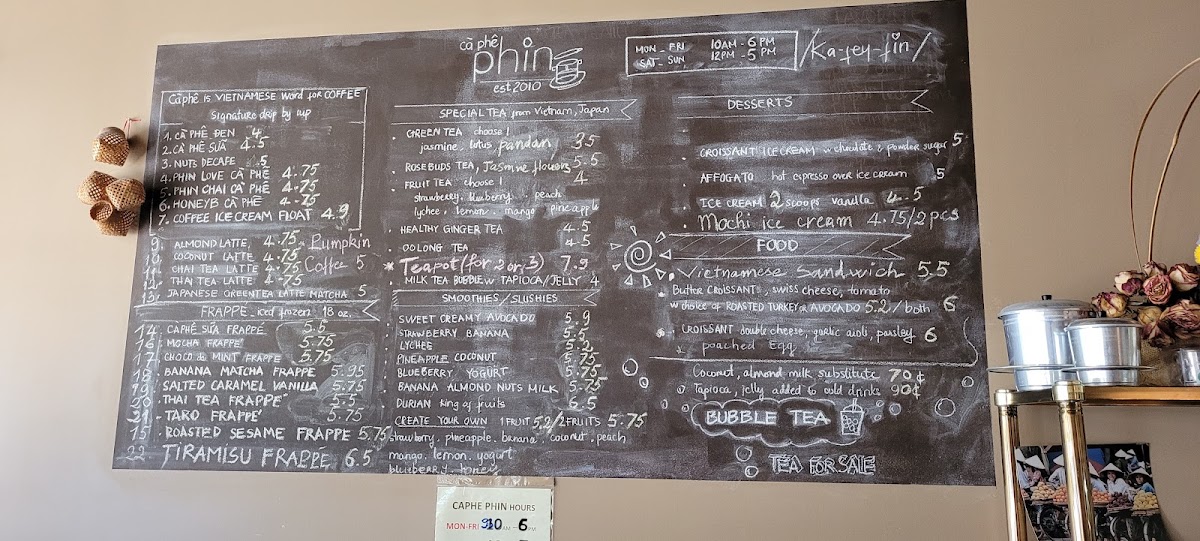 cà phê
phin
est.2010
MON - FRI 10AM - 6 PM
SAT - SUN 12PM - 5 PM
/Ka-fey-fin/
Cà phê is VIETNAMESE Word for COFFEE
Signature drip by cup
1. CÀ PHÊ ĐEN 4
2. CÀ PHÊ SỮA 4.5
3. NUTS DECAFE .5
4. PHIN LOVE CÀ PHÊ 4.75
5. PHIN CHAI CÀ PHÊ 4.75
6. HONEYB CÀ PHÊ 4.75
7. COFFEE ICE CREAM FLOAT 4.9
9. ALMOND LATTE 4.75
10 COCONUT LATTE 4.75
11 CHAI TEA LATTE 4.75
12. THAI TEA LATTE 4.75
13. JAPANESE GREENTEA LATTE MATCHA 5
Pumpkin
Coffee 5
FRAPPE. iced frozen 18 oz.
14. CAPHÊ SỮA FRAPPÉ 5.5
16. MOCHA FRAPPÉ 5.75
17. CHOCO & MINT FRAPPE 5.75
18. BANANA MATCHA FRAPPE 5.95
19. SALTED CARAMEL VANILLA 5.75
20. THAI TEA FRAPPE 5.5
21. TARO FRAPPE 5.75
15. ROASTED SESAME FRAPPE 5.75
22 TIRAMISU FRAPPE 6.5
SPECIAL TEA from Vietnam, Japan
GREEN TEA choose!
jasmine, lotus, pandan 3.5
ROSEBUDS TEA, Jasmine flowers 5.5
FRUIT TEA choose! 4
strawberry, blueberry, peach
lychee, lemon, mango, pineapple
HEALTHY GINGER TEA 4.5
OOLONG TEA 4.5
* Teapot (for 2 or 3) 7.9
MILK TEA BUBBLE w TAPIOCA/JELLY 4
SMOOTHIES / SLUSHIES
SWEET CREAMY AVOCADO 5.9
STRAWBERRY BANANA 5.5
LYCHES 5.2
PINEAPPLE COCONUT 5.75
BLUEBERRY YOGURT 5.75
BANANA ALMOND NUTS MILK 5.75
DURIAN King of fruits 6.5
CREATE YOUR OWN 1 FRUIT 5.2/2FRUITS 5.75
strawberry. pineapple. banana. coconut, peach
mango. lemon. yogurt
blueberry. honey
DESSERTS
CROISSANT ICE CREAM w chocolate & powder sugar 5
AFFOGATO hot espresso over ice cream 5
ICE CREAM 2 scoops vanilla 4.5
Mochi ice cream 4.75/2pcs
FOOD
Vietnamese Sandwich 5.5
Butter CROISSANTS, swiss cheese, tomato
w choice of ROASTED TURKEY or AVOCADO 5.2/both 6
CROISSANT double cheese, garlic aioli, parsley 6
poached Egg
Coconut, almond milk substitute 70¢
Tapioca, jelly added to cold drinks 90¢
BUBBLE TEA
TEA FOR SALE
CAPHE PHIN HOURS
MON-FRI 10AM - 6PM